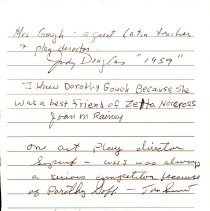 Mrs Gough - a great Latin teacher
& play director.
Judy Douglas "1959"
I knew Dorothy Gouck Because She
was a best friend of Zetta Norcross
Joan M Rainey
one act play director
- WHS was always
a serious competitor because
of Dorothy Goff -